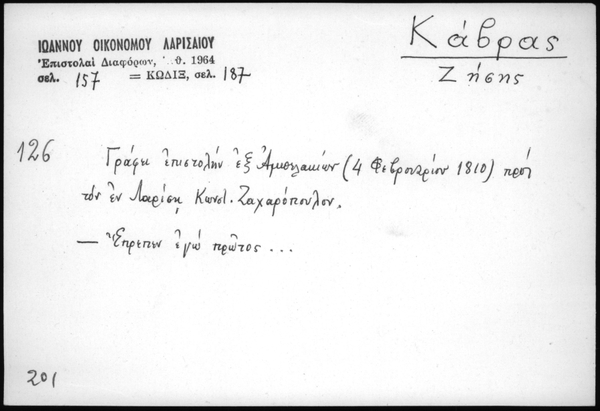 ΙΩΑΝΝΟΥ ΟΙΚΟΝΟΜΟΥ ΛΑΡΙΣΑΙΟΥ
Ἐπιστολαὶ Διαφόρων, θ. 1964
σελ. 157 = ΚΩΔΙΞ, σελ. 187
Κάβρας
Ζήσης
126
Γράφει ἐπιστολὴν ἐξ Ἀμπελακίων (4 Φεβρουαρίου 1810) πρὸς
τὸν ἐν Λαρίσῃ Κωνστ. Ζαχαρόπουλον.
— Ἔπρεπεν ἐγὼ πρῶτος ...
201